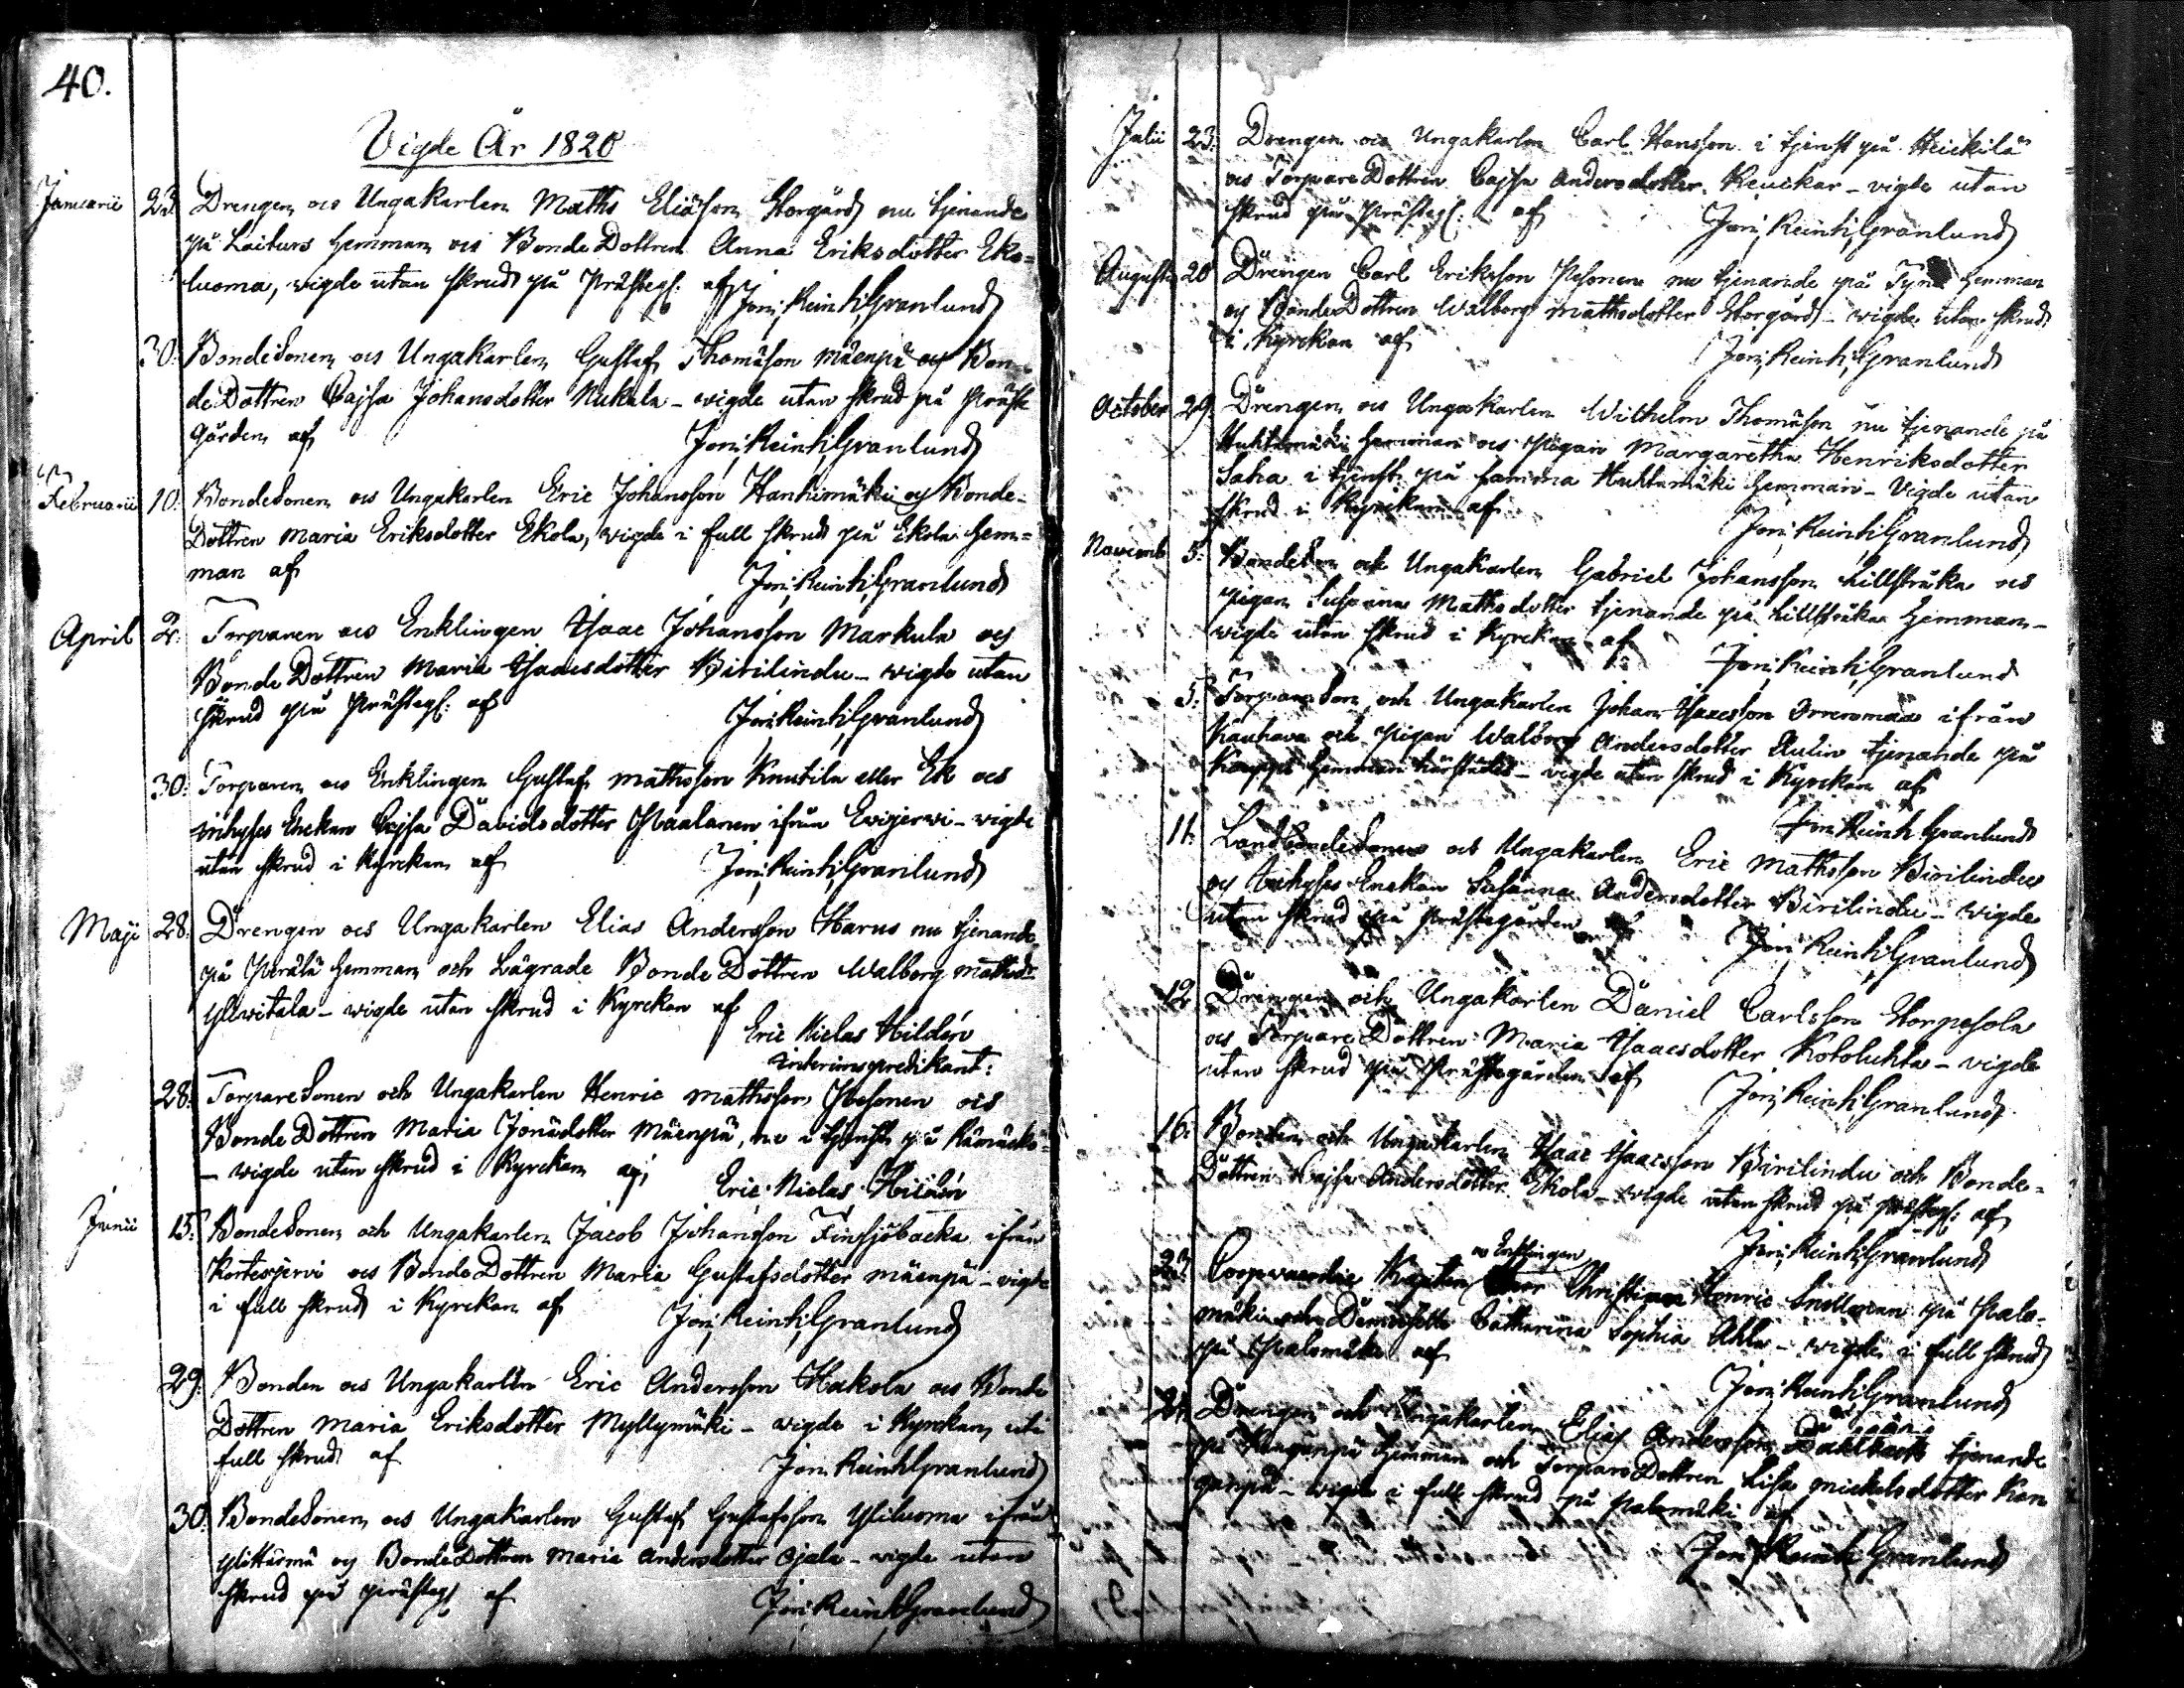 40.
Vigde År 1820
Januarii 23. Drengen ocs Ungakarlen Maths Eliäson Storgård nu tjenande
på Laiturs hemman ocs BondeDottren Anna Eriksdotter Eko=
luoma, vigde utan skrud på Prästeg: af Jon; Reinh; Granlund
30. Bondesonen ocs Ungakarlen Gustaf Thomäson Mäenpä oc Bon-
deDottren Cajsa Johansdotter Nukala - vigde utan skrud på Präste
Gården af Jon; Reinh; Granlund
Februarii 10. Bondesonen ocs Ungakarlen Eric Johansson Hanhimäki oc Bonde-
Dottren Maria Eriksdotter Ekola, vigde i full skrud på Ekola Hem=
man af Jon; Reinh; Granlund
April 2. Torparen ocs Enklingen Isaac Johansson Markula ocs
BondeDottren Maria Isaacsdotter Birilindu - vigde utan
skrud på Prästeg: af Jon; Reinh; Granlund
30. Torparen ocs Enklingen Gustaf Mathsson Knutila eller Ek ocs
inhyses Enckan Cajsa Davidsdotter ifrån Evijervi - vigde
utan skrud i Kyrckan af Jon; Reinh; Granlund
Maji 28. Drengen ocs Ungakarlen Elias Andersson Harus nu tjenande
på Perälä hemman och Lägrade BondeDottren Walborg Mathsdr
Ylvitala - vigde utan skrud i Kyrckan af
Eric Niclas Hildén
interimspredikant:
28. Torparesonen och Ungakarlen Henric Mathsson Pesonen ocs
BondeDottren Maria Jonädotter Mäenpä, nu i tjenst på Kämäckö
- vigde utan skrud i Kyrckan af; Eric Niclas Hildén
Junii 15. Bondesonen och Ungakarlen Jacob Johansson Finsjöbacka ifrån
Kortesjervi ocs BondeDottren Maria Gustafsdotter Mäenpä - vigde
i full skrud i Kyrckan af Jon; Reinh; Granlund
29. Bonden ocs Ungakarlen Eric Andersson Hakola ocs Bonde
Dottren Maria Eriksdotter Myllymäki - vigde i Kyrckan uti
full skrud af Jon; Reinh Granlund
30. Bondesonen ocs Ungakarlen Gustaf Gustafsson Yliluoma ifrån
Ylihärmä oc BondeDottren Maria Andersdotter Ojala - vigde utan
skrud på Prästeg af Jon; Reinh Granlund
Julii 23. Drengen ocs Ungakarlen Carl Hansson i tjenst på Heickilä
ocs TorpareDottren Cajsa Andersdotter Keuckar - vigde utan
skrud på Prästeg: af Jon; Reinh; Granlund
Augusti 20 Drengen Carl Eriksson Pesonen nu tjenande på Tyni hemman
oc BondeDottren Walborg Mathsdotter Storgård - vigde utan skrud
i Kyrckan af Jon; Reinh; Granlund
October 29. Drengen ocs Ungakarlen Wilhelm Thomäson nu tjenande på
Huhtamäki hemman ocs Pigan Margaretha Henriksdotter
Saha i tjenst på samma Huhtamäki hemman - Vigde utan
skrud i Kyrckan af Jon; Reinh; Granlund
Novemb 5. Bondeson och Ungakarlen Gabriel Johansson Lillstråka ocs
Pigan Susanna Mathsdotter tjenande på Lillstråka hemman -
vigde utan skrud i Kyrckan af Jon; Reinh; Granlund
5. TorpareSon och Ungakarlen Johan Isacsson Orrenmaa ifrån
Kauhava och Pigan Walborg Andersdotter Aulin tjenande på
Kauppi hemman härstädes - vigde utan skrud i Kyrckan af
Jon; Reinh Granlund
11. Landbondesonen och Ungakarlen Eric Mathsson Birilindu
oc Inhyses Enckan Susanna Andersdotter Birilindu - vigde
utan skrud på Prästegården af Jon; Reinh; Granlund
12 Drengen och Ungakarlen Daniel Carlsson Storpesola
ocs TorpareDottren Maria Isaacsdotter Kotoluhta - vigde
utan skrud på Prästegården af Jon; Reinh; Granlund
16. Bonden och Ungakarlen Isaac Isaacsson Birilindu och Bonde-
Dottren Cajsa Andersdotter Ekola - vigde utan skrud på Prästeg: af
Jon; Reinh; Granlund
oc Enklingen
23. Coopvaerdie Kapiten Herr Christian Henric Snellman på Palo-
mäki och Demoiselle Catharina Sophia Ahla - vigde i full skrud
på Palomäki af Jon; Reinh; Granlund
Drengen och Ungakarlen Elias Andersson Dahlbacka tjenande
på Kanganpä hemman och TorpareDottren Lisa Mickelsdotter Kan
ganpä - vigde i full skrud på Palomäki af
Jon; Reinh; Granlund